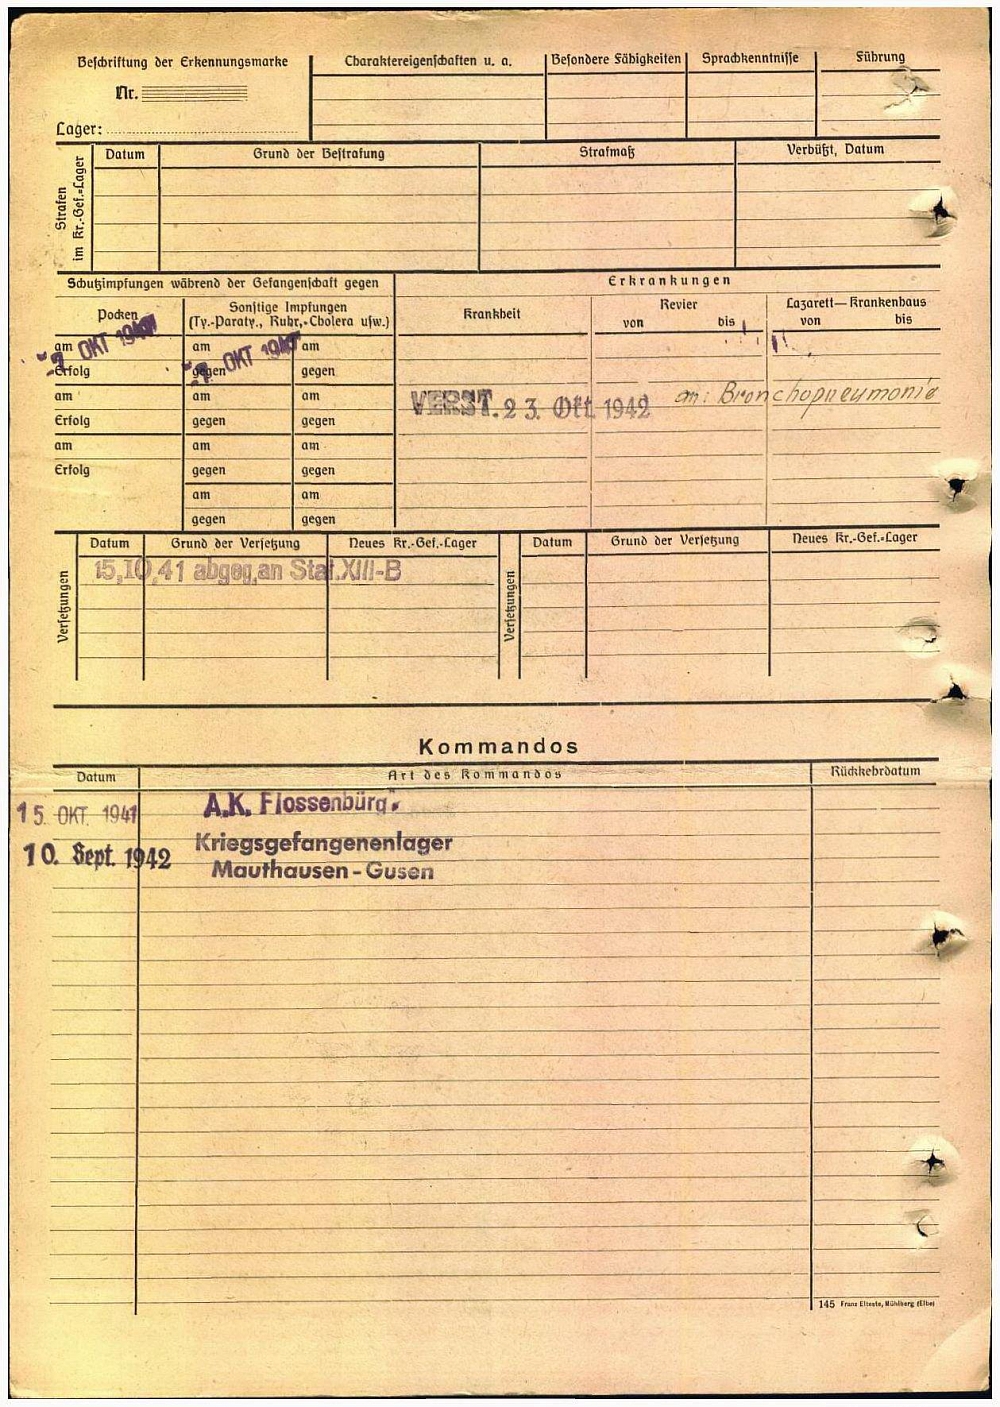 Beschriftung der Erkennungsmarke
Nr.
Lager:
Charaktereigenschaften u. a.
Besondere Fähigkeiten
Sprachkenntnisse
Führung
Strafen im Kr.-Gef.-Lager
Datum
Grund der Bestrafung
Strafmaß
Verbüßt, Datum
Schutzimpfungen während der Gefangenschaft gegen
Erkrankungen
Pocken
Sonstige Impfungen
(Ty.-Paraty., Ruhr,-Cholera usw.)
Krankheit
Revier
von bis
Lazarett—Krankenhaus
von bis
am am am
OKT OKT
Erfolg gegen gegen
am am am
VERST. 23. Okt. 1942 an: Bronchopneumonie
Erfolg gegen gegen
am am am
Erfolg gegen gegen
am am
gegen gegen
Versetzungen
Datum Grund der Versetzung Neues Kr.-Gef.-Lager
15,10,41 abgeg,an Stal.XIII-B
Versetzungen
Datum Grund der Versetzung Neues Kr.-Gef.-Lager
Kommandos
Datum Art des Kommandos Rückkehrdatum
15. OKT. 1941 A.K. Flossenbürg.
10. Sept. 1942 Kriegsgefangenenlager
Mauthausen-Gusen
145 Franz Elteste, Mühlberg (Elbe)